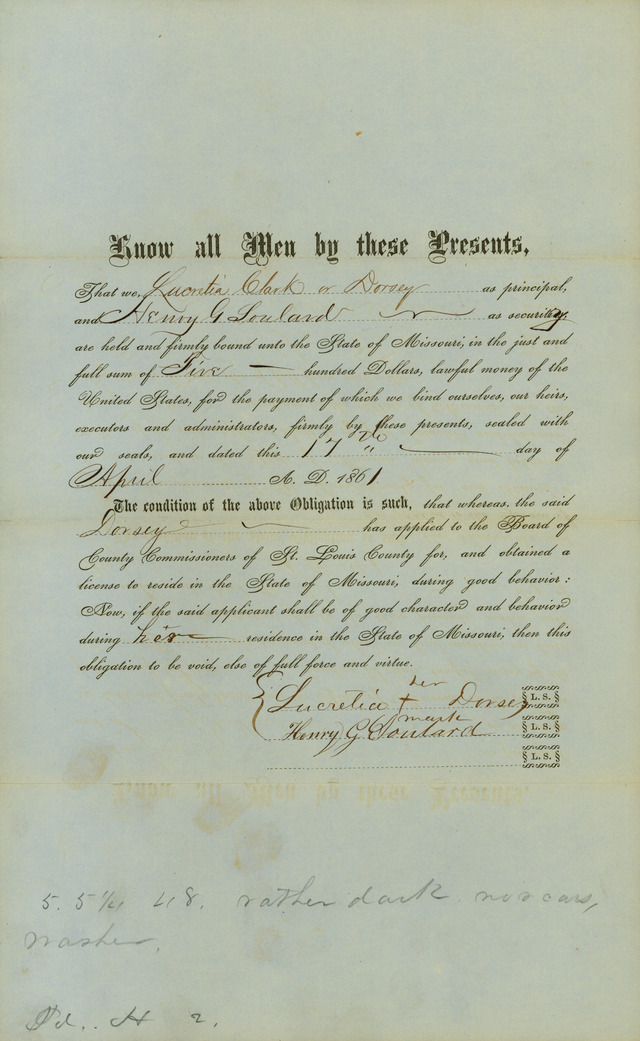 Know all Men by these Presents,
That we, Lucretia Clark or Dorsey as principal,
and Henry G Soulard as security
are held and firmly bound unto the State of Missouri, in the just and
full sum of Five hundred Dollars, lawful money of the
United States, for the payment of which we bind ourselves, our heirs,
executors and administrators, firmly by these presents, sealed with
our seals, and dated this 17th day of
April A. D. 1861
The condition of the above Obligation is such, that whereas, the said
Dorsey has applied to the Board of
County Commissioners of St. Louis County for, and obtained a
license to reside in the State of Missouri, during good behavior:
Now, if the said applicant shall be of good character and behavior
during her residence in the State of Missouri, then this
obligation to be void, else of full force and virtue.
her
Lucretia + Dorsey L. S.
mark
Henry G. Soulard L. S.
L. S.
5. 5 1/4 48. rather dark no scars,
washer,
Pd. H 2.